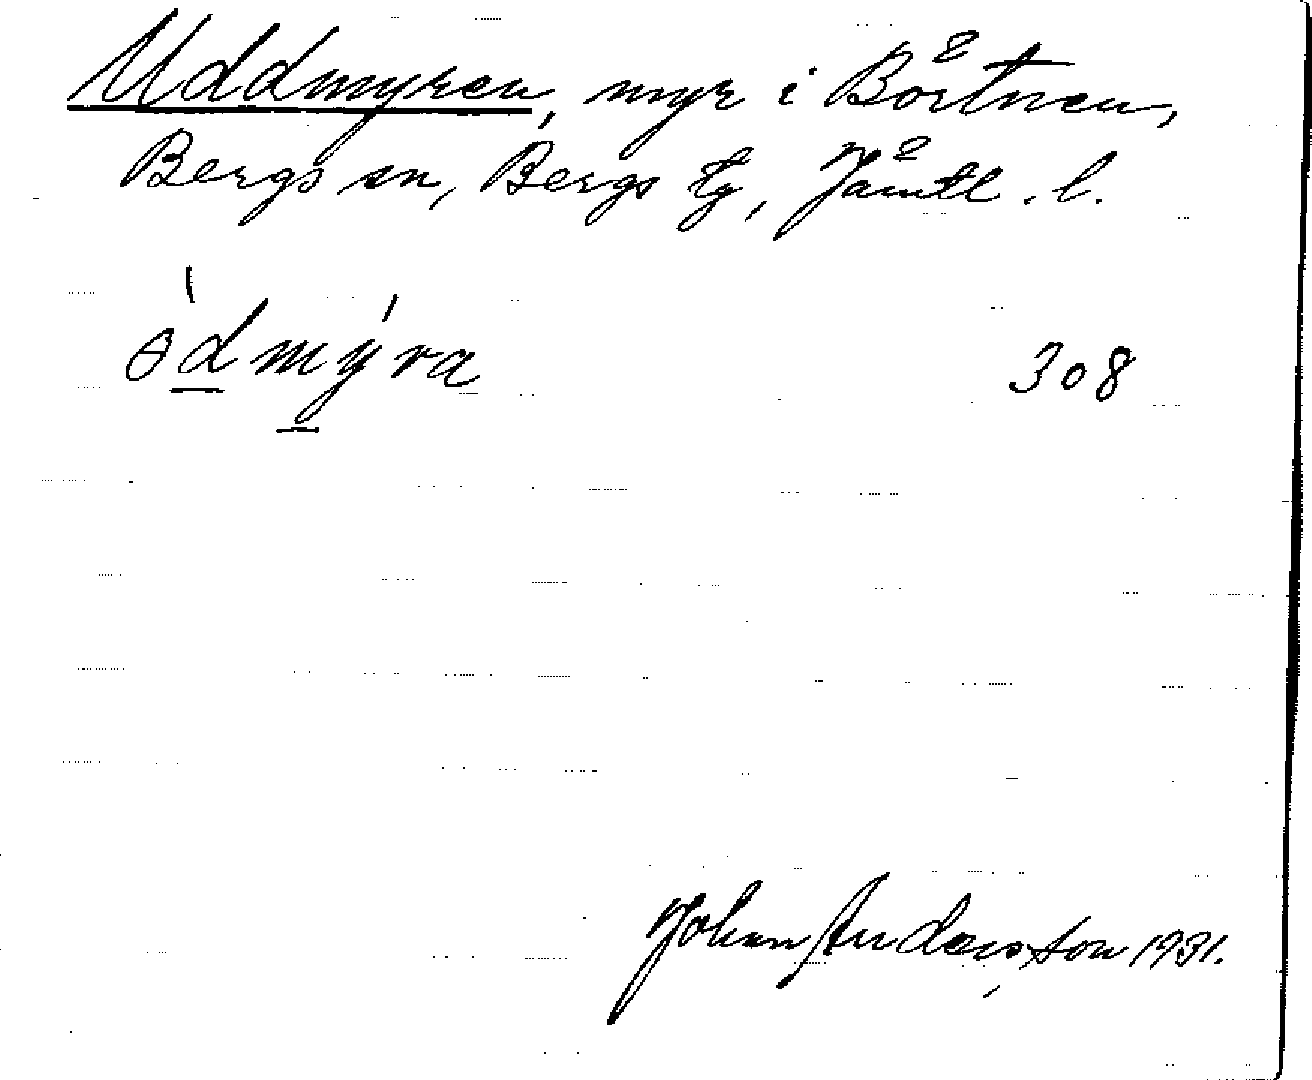 Uddmyren, myr i Börtnen,
Bergs sn, Bergs tg, Jämtl. l.
ɵ̀dmýra 308
Johan Andersson 1931.